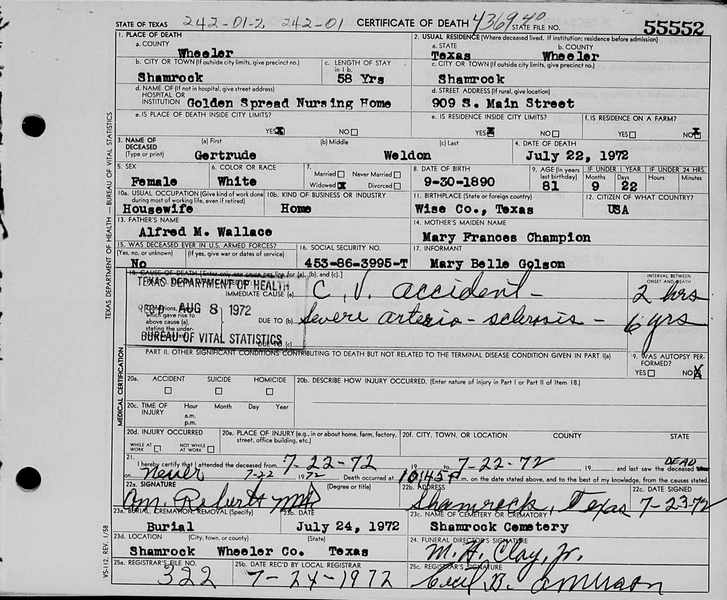 242-01-2, 242-01 436940
STATE OF TEXAS CERTIFICATE OF DEATH STATE FILE NO. 55552
1. PLACE OF DEATH 2. USUAL RESIDENCE (Where deceased lived. If institution: residence before admission)
a. COUNTY a. STATE b. COUNTY
Wheeler Texas Wheeler
b. CITY OR TOWN (If outside city limits, give precinct no.) c. LENGTH OF STAY in 1 b. c. CITY OR TOWN (If outside city limits, give precinct no.)
Shamrock 58 Yrs Shamrock
d. NAME OF (If not in hospital, give street address) HOSPITAL OR INSTITUTION d. STREET ADDRESS (If rural, give location)
Golden Spread Nursing Home 909 S. Main Street
e. IS PLACE OF DEATH INSIDE CITY LIMITS? e. IS RESIDENCE INSIDE CITY LIMITS? f. IS RESIDENCE ON A FARM?
YES X NO YES X NO YES NO X
3. NAME OF DECEASED (Type or print) (a) First (b) Middle (c) Last 4. DATE OF DEATH
Gertrude Weldon July 22, 1972
5. SEX 6. COLOR OR RACE 7. Married Never Married Widowed X Divorced 8. DATE OF BIRTH 9. AGE (In years last birthday) IF UNDER 1 YEAR Months Days IF UNDER 24 HRS. Hours Minutes
Female White 9-30-1890 81 9 22
10a. USUAL OCCUPATION (Give kind of work done during most of working life, even if retired) 10b. KIND OF BUSINESS OR INDUSTRY 11. BIRTHPLACE (State or foreign country) 12. CITIZEN OF WHAT COUNTRY?
Housewife Home Wise Co., Texas USA
13. FATHER'S NAME 14. MOTHER'S MAIDEN NAME
Alfred M. Wallace Mary Frances Champion
15. WAS DECEASED EVER IN U.S. ARMED FORCES? 16. SOCIAL SECURITY NO. 17. INFORMANT
(Yes, no, or unknown) (If yes, give war or dates of service)
No 453-86-3995-T Mary Belle Golson
18. CAUSE OF DEATH [Enter only one cause per line for (a), (b), and (c).] INTERVAL BETWEEN ONSET AND DEATH
TEXAS DEPARTMENT OF HEALTH
IMMEDIATE CAUSE (a) C. V. accident - 2 hrs
AUG 8 1972
Conditions, which gave rise to above cause (a), stating the under- DUE TO (b) Severe arterio-sclerosis - 6 yrs
BUREAU OF VITAL STATISTICS DUE TO (c)
PART II. OTHER SIGNIFICANT CONDITIONS CONTRIBUTING TO DEATH BUT NOT RELATED TO THE TERMINAL DISEASE CONDITION GIVEN IN PART I(a) 19. WAS AUTOPSY PERFORMED?
YES NO X
20a. ACCIDENT SUICIDE HOMICIDE 20b. DESCRIBE HOW INJURY OCCURRED. (Enter nature of injury in Part I or Part II of Item 18.)
20c. TIME OF INJURY Hour a.m. p.m. Month Day Year
20d. INJURY OCCURRED WHILE AT WORK NOT WHILE AT WORK 20e. PLACE OF INJURY (e.g., in or about home, farm, factory, street, office building, etc.) 20f. CITY, TOWN, OR LOCATION COUNTY STATE
21. I hereby certify that I attended the deceased from 7-22-72 19 to 7-22-72 19 and last saw the deceased DEAD
on Never 7-22 1972 Death occurred at 10:45 P m. on the date stated above, and to the best of my knowledge, from the causes stated.
22a. SIGNATURE (Degree or title) 22b. ADDRESS 22c. DATE SIGNED
MD Shamrock, Texas 7-23-72
23a. BURIAL, CREMATION, REMOVAL (Specify) 23b. DATE 23c. NAME OF CEMETERY OR CREMATORY
Burial July 24, 1972 Shamrock Cemetery
23d. LOCATION (City, town, or county) (State) 24. FUNERAL DIRECTOR'S SIGNATURE
Shamrock Wheeler Co. Texas M. H. Clay, Jr.
25a. REGISTRAR'S FILE NO. 25b. DATE REC'D BY LOCAL REGISTRAR 25c. REGISTRAR'S SIGNATURE
322 7-24-1972 Cecil B.
TEXAS DEPARTMENT OF HEALTH — BUREAU OF VITAL STATISTICS
MEDICAL CERTIFICATION
VS-112, REV. 1/58